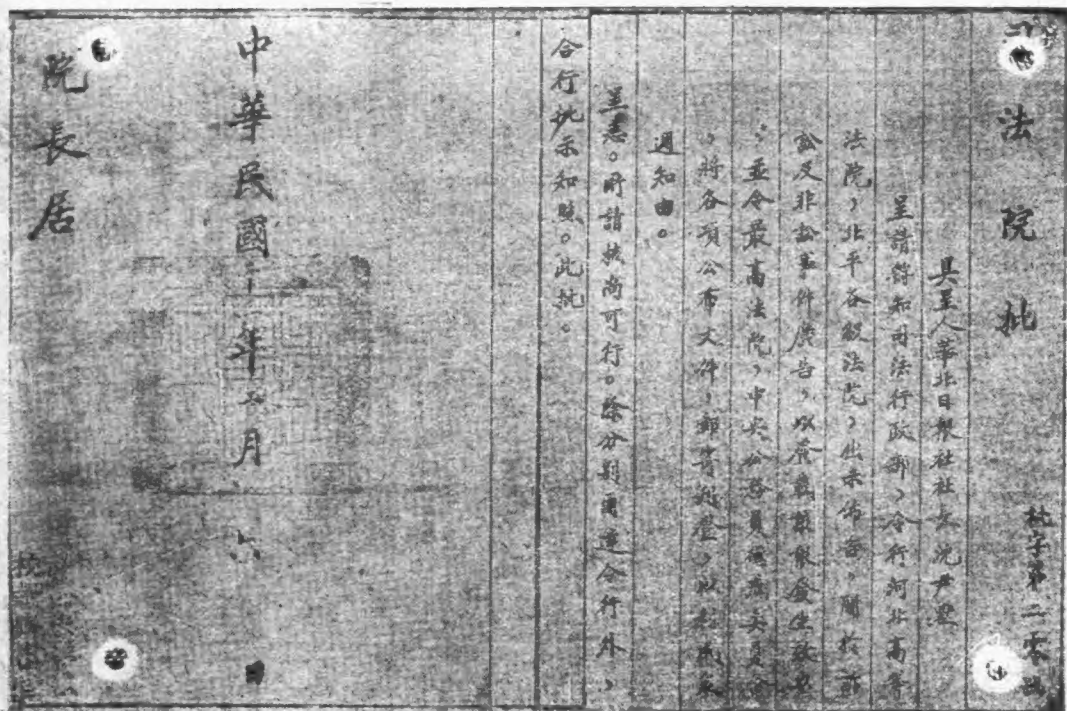 司法院批
批字第二零 號
具呈人華北日報社社長沈尹默
呈請 知司法行政部,令行河北高等
法院,北平各級法院,出示佈告。關於訴
訟及非訟事件廣告,以登載 報發生效力
,並令最高法院,中央公務員懲戒委員會
,將各項公布文件,郵寄 登,以 眾
週知由。
呈悉。所請核尚可行。除分別函達令行外,
合行批示知照。此批。
中華民國二十一年 月 六 日
院長居